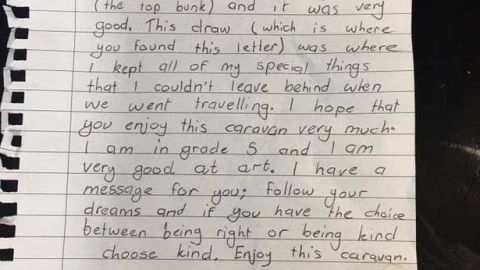 (the top bunk) and it was very
good. This draw (which is where
you found this letter) was where
I kept all of my special things
that I couldn't leave behind when
we went travelling. I hope that
you enjoy this caravan very much.
I am in grade 5 and I am
very good at art. I have a
message for you; follow your
dreams and if you have the choice
between being right or being kind
choose kind. Enjoy this caravan.